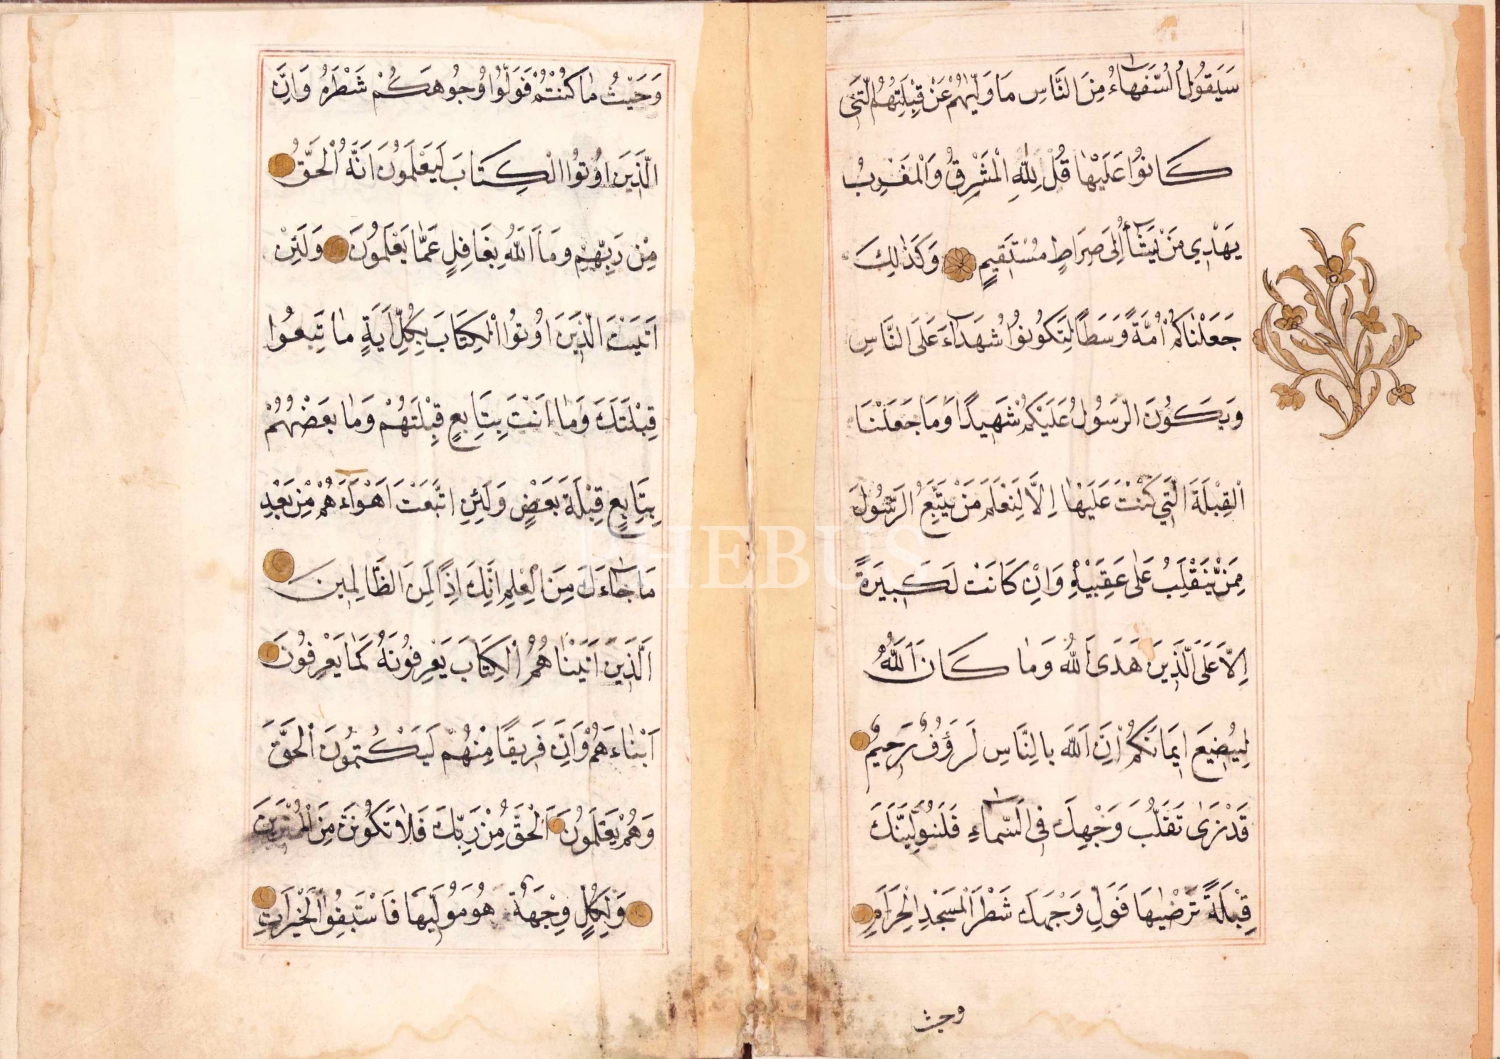 سَيَقُولُ السُّفَهَاءُ مِنَ النَّاسِ مَا وَلّٰيهُمْ عَنْ قِبْلَتِهُمُ الَّتِى
كَانُوا عَلَيْهٰا قُلْ لِلّٰهِ الْمَشْرِقُ وَالْمَغْرِبُ
يَهْدِي مَنْ يَشَآءُ اِلىٰ صِرَاطٍ مُسْتَقِيمٍ وَكَذٰلِكَ
جَعَلْنَاكُمْ اُمَّةً وَسَطًا لِتَكُونُوا شُهَدَآءَ عَلَى النَّاسِ
وَيَكُونَ الرَّسُولُ عَلَيْكُمْ شَهِيدًا وَمَا جَعَلْنَا
الْقِبْلَةَ الَّتِي كُنْتَ عَلَيْهٰا اِلَّا لِنَعْلَمَ مَنْ يَتَّبِعُ الرَّسُولَ
مِمَّنْ يَنْقَلِبُ عَلٰى عَقِبَيْهِ وَاِنْ كَانَتْ لَكَبِيرَةً
اِلَّا عَلَى الَّذِينَ هَدَى اللّٰهُ وَمٰا كَانَ اللّٰهُ
لِيُضِيعَ اِيمَانَكُمْ اِنَّ اللّٰهَ بِالنَّاسِ لَرَؤُفٌ رَحِيمٌ
قَدْ نَرٰى تَقَلُّبَ وَجْهِكَ فِى السَّمٰاءِ فَلَنُوَلِّيَنَّكَ
قِبْلَةً تَرْضٰيهَا فَوَلِّ وَجْهَكَ شَطْرَ الْمَسْجِدِ الْحَرَامِ
وحيث
وَحَيْثُ مٰا كُنْتُمْ فَوَلُّوا وُجُوهَكُمْ شَطْرَهُ وَاِنَّ
الَّذِينَ اُوتُوا الْكِتَابَ لَيَعْلَمُونَ اَنَّهُ الْحَقُّ
مِنْ رَبِّهِمْ وَمَا اللّٰهُ بِغَافِلٍ عَمَّا يَعْلَمُونَ وَلَئِنْ
اَتَيْتَ الَّذِينَ اُوتُوا الْكِتَابَ بِكُلِّ اٰيَةٍ مٰا تَبِعُوا
قِبْلَتَكَ وَمٰا اَنْتَ بِتَابِعٍ قِبْلَتَهُمْ وَمٰا بَعْضُهُمْ
بِتَابِعٍ قِبْلَةَ بَعْضٍ وَلَئِنِ اتَّبَعْتَ اَهْوَآءَهُمْ مِنْ بَعْدِ
مَا جٰاءَكَ مِنَ الْعِلْمِ اِنَّكَ اِذًا لَمِنَ الظَّالِمِينَ
اَلَّذِينَ اٰتَيْنَاهُمُ الْكِتَابَ يَعْرِفُونَهُ كَمٰا يَعْرِفُونَ
اَبْنٰاءَهُمْ وَاِنَّ فَرِيقًا مِنْهُمْ لَيَكْتُمُونَ الْحَقَّ
وَهُمْ يَعْلَمُونَ اَلْحَقُّ مِنْ رَبِّكَ فَلٰا تَكُونَنَّ مِنَ الْمُمْتَرِينَ
وَلِكُلٍّ وِجْهَةٌ هُوَ مُوَلِّيهَا فَاسْتَبِقُوا الْخَيْرَاتِ
PHEBUS